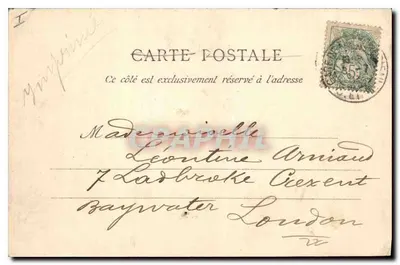 I
Imprimé
CARTE POSTALE
Ce côté est exclusivement réservé à l'adresse
Mademoiselle
Léontine Arniaud
7 Ladbroke Crezent
Baywater London
CPAPHIL